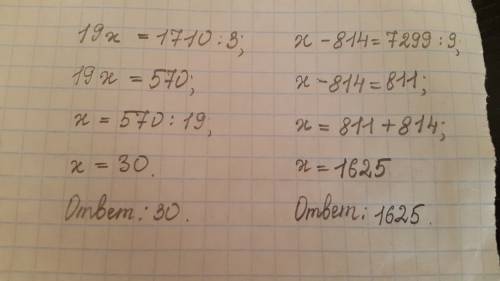 19x = 1710 : 3;
19x = 570;
x = 570 : 19;
x = 30.
Ответ: 30.
x - 814 = 7299 : 9;
x - 814 = 811;
x = 811 + 814;
x = 1625
Ответ: 1625.